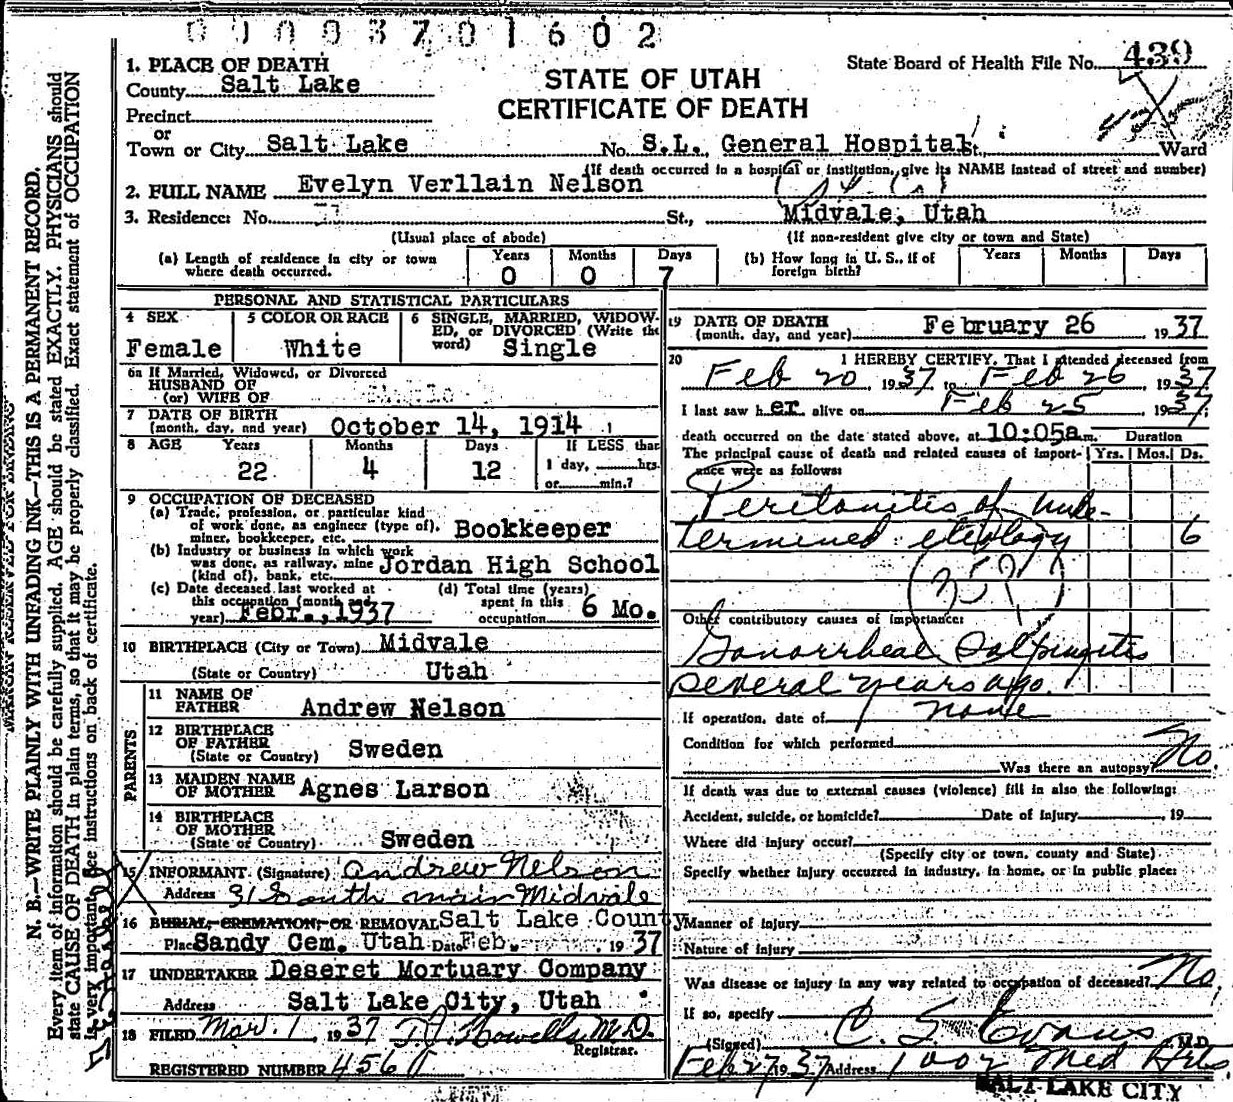 0003701602
State Board of Health File No. 439
STATE OF UTAH
CERTIFICATE OF DEATH
1. PLACE OF DEATH
County Salt Lake
Precinct
or
Town or City Salt Lake No. S.L. General Hospital St., Ward
(If death occurred in a hospital or institution, give its NAME instead of street and number)
2. FULL NAME Evelyn Verllain Nelson
3. Residence: No. St., Midvale, Utah
(Usual place of abode) (If non-resident give city or town and State)
(a) Length of residence in city or town where death occurred. Years 0 Months 0 Days 7 (b) How long in U. S., if of foreign birth? Years Months Days
PERSONAL AND STATISTICAL PARTICULARS
4 SEX Female
5 COLOR OR RACE White
6 SINGLE, MARRIED, WIDOWED, or DIVORCED (Write the word) Single
6a If Married, Widowed, or Divorced
HUSBAND OF
(or) WIFE OF
7 DATE OF BIRTH
(month, day, and year) October 14, 1914
8 AGE Years 22 Months 4 Days 12 If LESS than 1 day, hrs. or min.?
9 OCCUPATION OF DECEASED
(a) Trade, profession, or particular kind
of work done, as engineer (type of),
miner, bookkeeper, etc. Bookkeeper
(b) Industry or business in which work
was done, as railway, mine
(kind of), bank, etc. Jordan High School
(c) Date deceased last worked at
this occupation (month and
year) Febr., 1937
(d) Total time (years)
spent in this
occupation 6 Mo.
10 BIRTHPLACE (City or Town) Midvale
(State or Country) Utah
PARENTS
11 NAME OF
FATHER Andrew Nelson
12 BIRTHPLACE
OF FATHER
(State or Country) Sweden
13 MAIDEN NAME
OF MOTHER Agnes Larson
14 BIRTHPLACE
OF MOTHER
(State or Country) Sweden
15 INFORMANT (Signature) Andrew Nelson
Address 31 South Main Midvale
16 BURIAL, CREMATION, OR REMOVAL Salt Lake County
Place Sandy Cem. Utah Date Feb. 1937
17 UNDERTAKER Deseret Mortuary Company
Address Salt Lake City, Utah
18 FILED Mar. 1, 1937 T.J. Howells M.D.
Registrar.
REGISTERED NUMBER 456
19 DATE OF DEATH
(month, day, and year) February 26 1937
20 I HEREBY CERTIFY, That I attended deceased from
Feb 20, 1937 to Feb 26 1937
I last saw her alive on Feb 25 1937
death occurred on the date stated above, at 10:05a m. Duration
The principal cause of death and related causes of importance were as follows: Yrs. Mos. Ds.
Peritonitis of unde-
termined etiology 6
Other contributory causes of importance:
Gonorrheal Salpingitis
several years ago.
If operation, date of none
Condition for which performed
Was there an autopsy? No.
If death was due to external causes (violence) fill in also the following:
Accident, suicide, or homicide? Date of Injury 19
Where did injury occur?
(Specify city or town, county and State)
Specify whether injury occurred in industry, in home, or in public place:
Manner of injury
Nature of injury
Was disease or injury in any way related to occupation of deceased? No.
If so, specify
(Signed) C. S. Evans M.D.
Feb 27 1937 Address 1002 Med Arts
SALT LAKE CITY
MARGIN RESERVED FOR BINDING
N. B.—WRITE PLAINLY WITH UNFADING INK—THIS IS A PERMANENT RECORD.
Every item of information should be carefully supplied. AGE should be stated EXACTLY. PHYSICIANS should
state CAUSE OF DEATH in plain terms, so that it may be properly classified. Exact statement of OCCUPATION
is very important. See instructions on back of certificate.